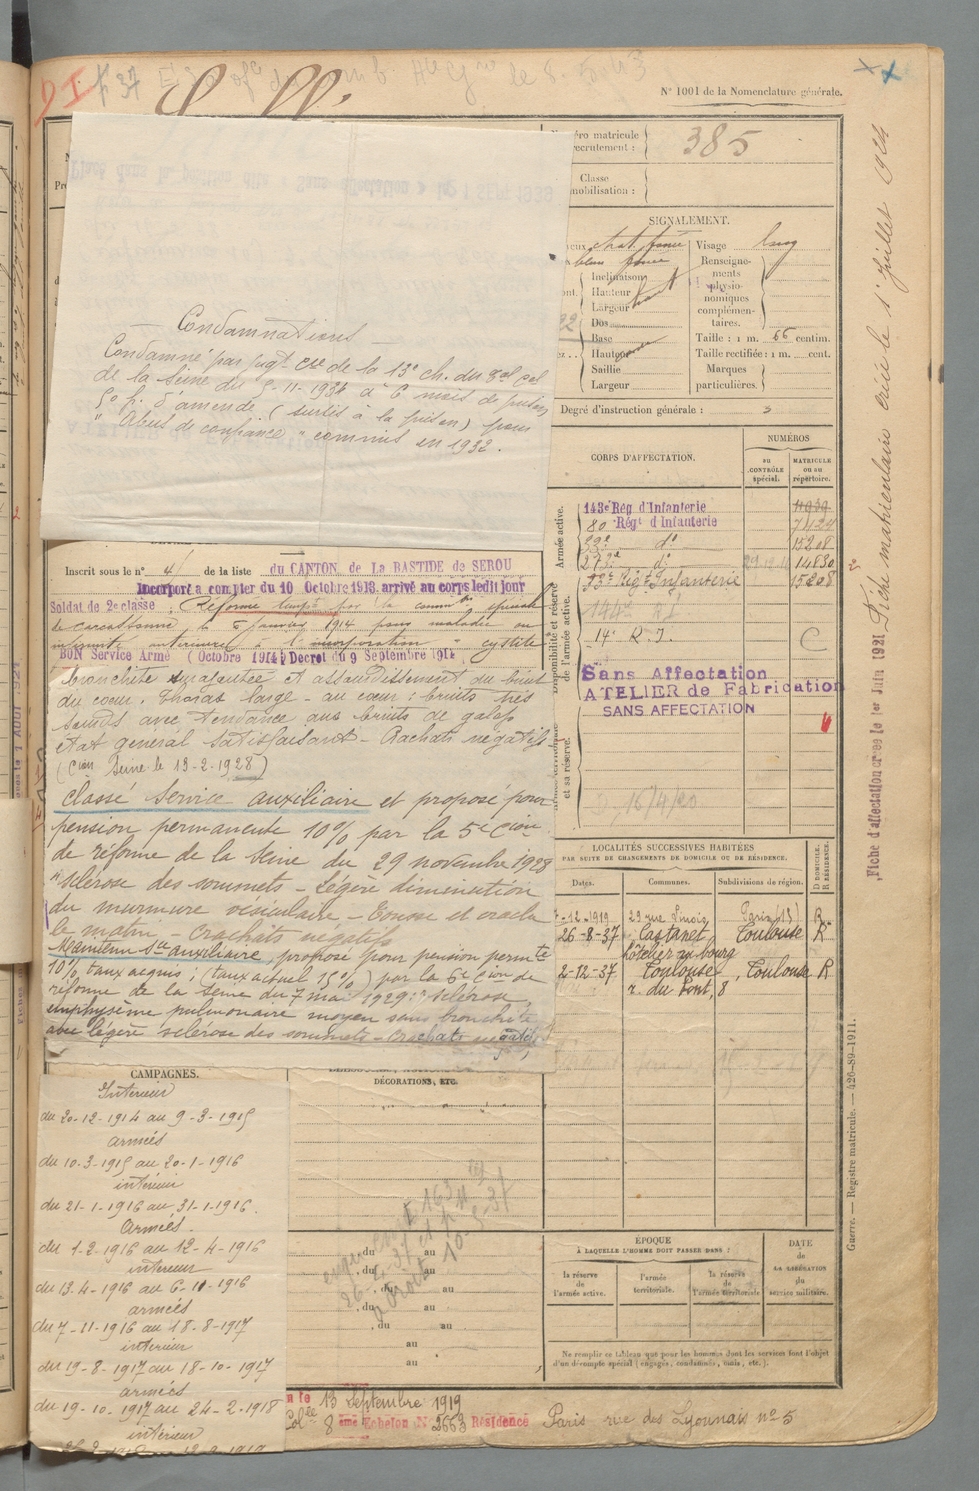 N° 1001 de la Nomenclature générale.
385
Classe
SIGNALEMENT.
Visage long
Renseigne-
ments
physio-
nomiques
complémen-
taires.
Inclinaison
Hauteur
Largeur
Dos
Base
Hauteur
Saillie
Largeur
Taille : 1 m. 66 centim.
Taille rectifiée : 1 m. cent.
Marques
particulières.
Degré d'instruction générale : 3
Condamnations
Condamné par jugt de la 13e ch. du
de la Seine du -11-1934 à 6 mois de prison
50 f. d'amende (sursis à la prison) pour
"Abus de confiance" commis en 1932.
CORPS D'AFFECTATION.
NUMÉROS
AU CONTRÔLE spécial.
MATRICULE ou au répertoire.
Armée active.
Disponibilité et réserve de l'armée active.
et sa réserve.
143e Rég d'Infanterie
80 Régt d'Infanterie 7424
d° 15208
d° 14830
Infanterie 15208
144e R.I.
14e R.I. C
Sans Affectation
ATELIER de Fabrication
SANS AFFECTATION
16/4/20
Inscrit sous le n° 4 de la liste du CANTON de LA BASTIDE de SEROU
Incorporé à compter du 10 Octobre 1913. arrivé au corps ledit jour
Soldat de 2e classe. Réformé tempre par la common spéciale
de Carcassonne le 6 janvier 1914 pour maladie ou
infirmité antérieure à l'incorporation "cystite"
BON Service Armé (Octobre 1914) Décret du 9 Septembre 1914
bronchite et assourdissement du bruit
du coeur. Thorax large - au coeur : bruits très
sourds avec tendance aux bruits de galop
état général satisfaisant - Crachats négatifs
(Cion Seine le 13-2-1928)
Classé Service auxiliaire et proposé pour
pension permanente 10% par la 5e Cion
de réforme de la Seine du 29 novembre 1928
"Sclérose des sommets - Légère diminution
du murmure vésiculaire - Tousse et crache
le matin - Crachats négatifs
Maintenu Sce auxiliaire, proposé pour pension permte
10% taux acquis ; (taux actuel 15%) par la 6e Cion de
réforme de la Seine du 7 mai 1929 : "Sclérose,
emphysème pulmonaire moyen sans bronchite
avec légère sclérose des sommets - Crachats négatifs
LOCALITÉS SUCCESSIVES HABITÉES
PAR SUITE DE CHANGEMENTS DE DOMICILE OU DE RÉSIDENCE.
Dates. Communes. Subdivisions de région. D DOMICILE. R RÉSIDENCE.
-12-1919 29 rue Paris (13) R
26-8-37 Castanet Toulouse R
hôtelier au bourg
2-12-37 Toulouse, Toulouse R
r. du Pont, 8
CAMPAGNES.
Intérieur
du 20-12-1914 au 9-3-1915
armées
du 10-3-1915 au 20-1-1916
intérieur
du 21-1-1916 au 31-1-1916.
Armées
du 1-2-1916 au 12-4-1916
intérieur
du 13-4-1916 au 6-11-1916
armées
du 7-11-1916 au 18-8-1917
intérieur
du 19-8-1917 au 18-10-1917
armées
du 19-10-1917 au 24-2-1918
intérieur
DÉCORATIONS, ETC.
du au
du au
du au
du au
du au
au
au
ÉPOQUE
À LAQUELLE L'HOMME DOIT PASSER DANS :
la réserve de l'armée active.
l'armée territoriale.
la réserve de l'armée territoriale.
DATE
DE LA LIBÉRATION
du
service militaire.
Ne remplir ce tableau que pour les hommes dont les services font l'objet
d'un décompte spécial (engagés, condamnés, omis, etc.).
le 13 Septembre 1919
8 ème Echelon N° 2653 Résidence Paris rue des Lyonnais n° 5
Fiche matriculaire créée le 1er juillet 1924
Fiche d'affectation créée le 1er Juin 1921
Guerre. — Registre matricule. — 426-89-1911.